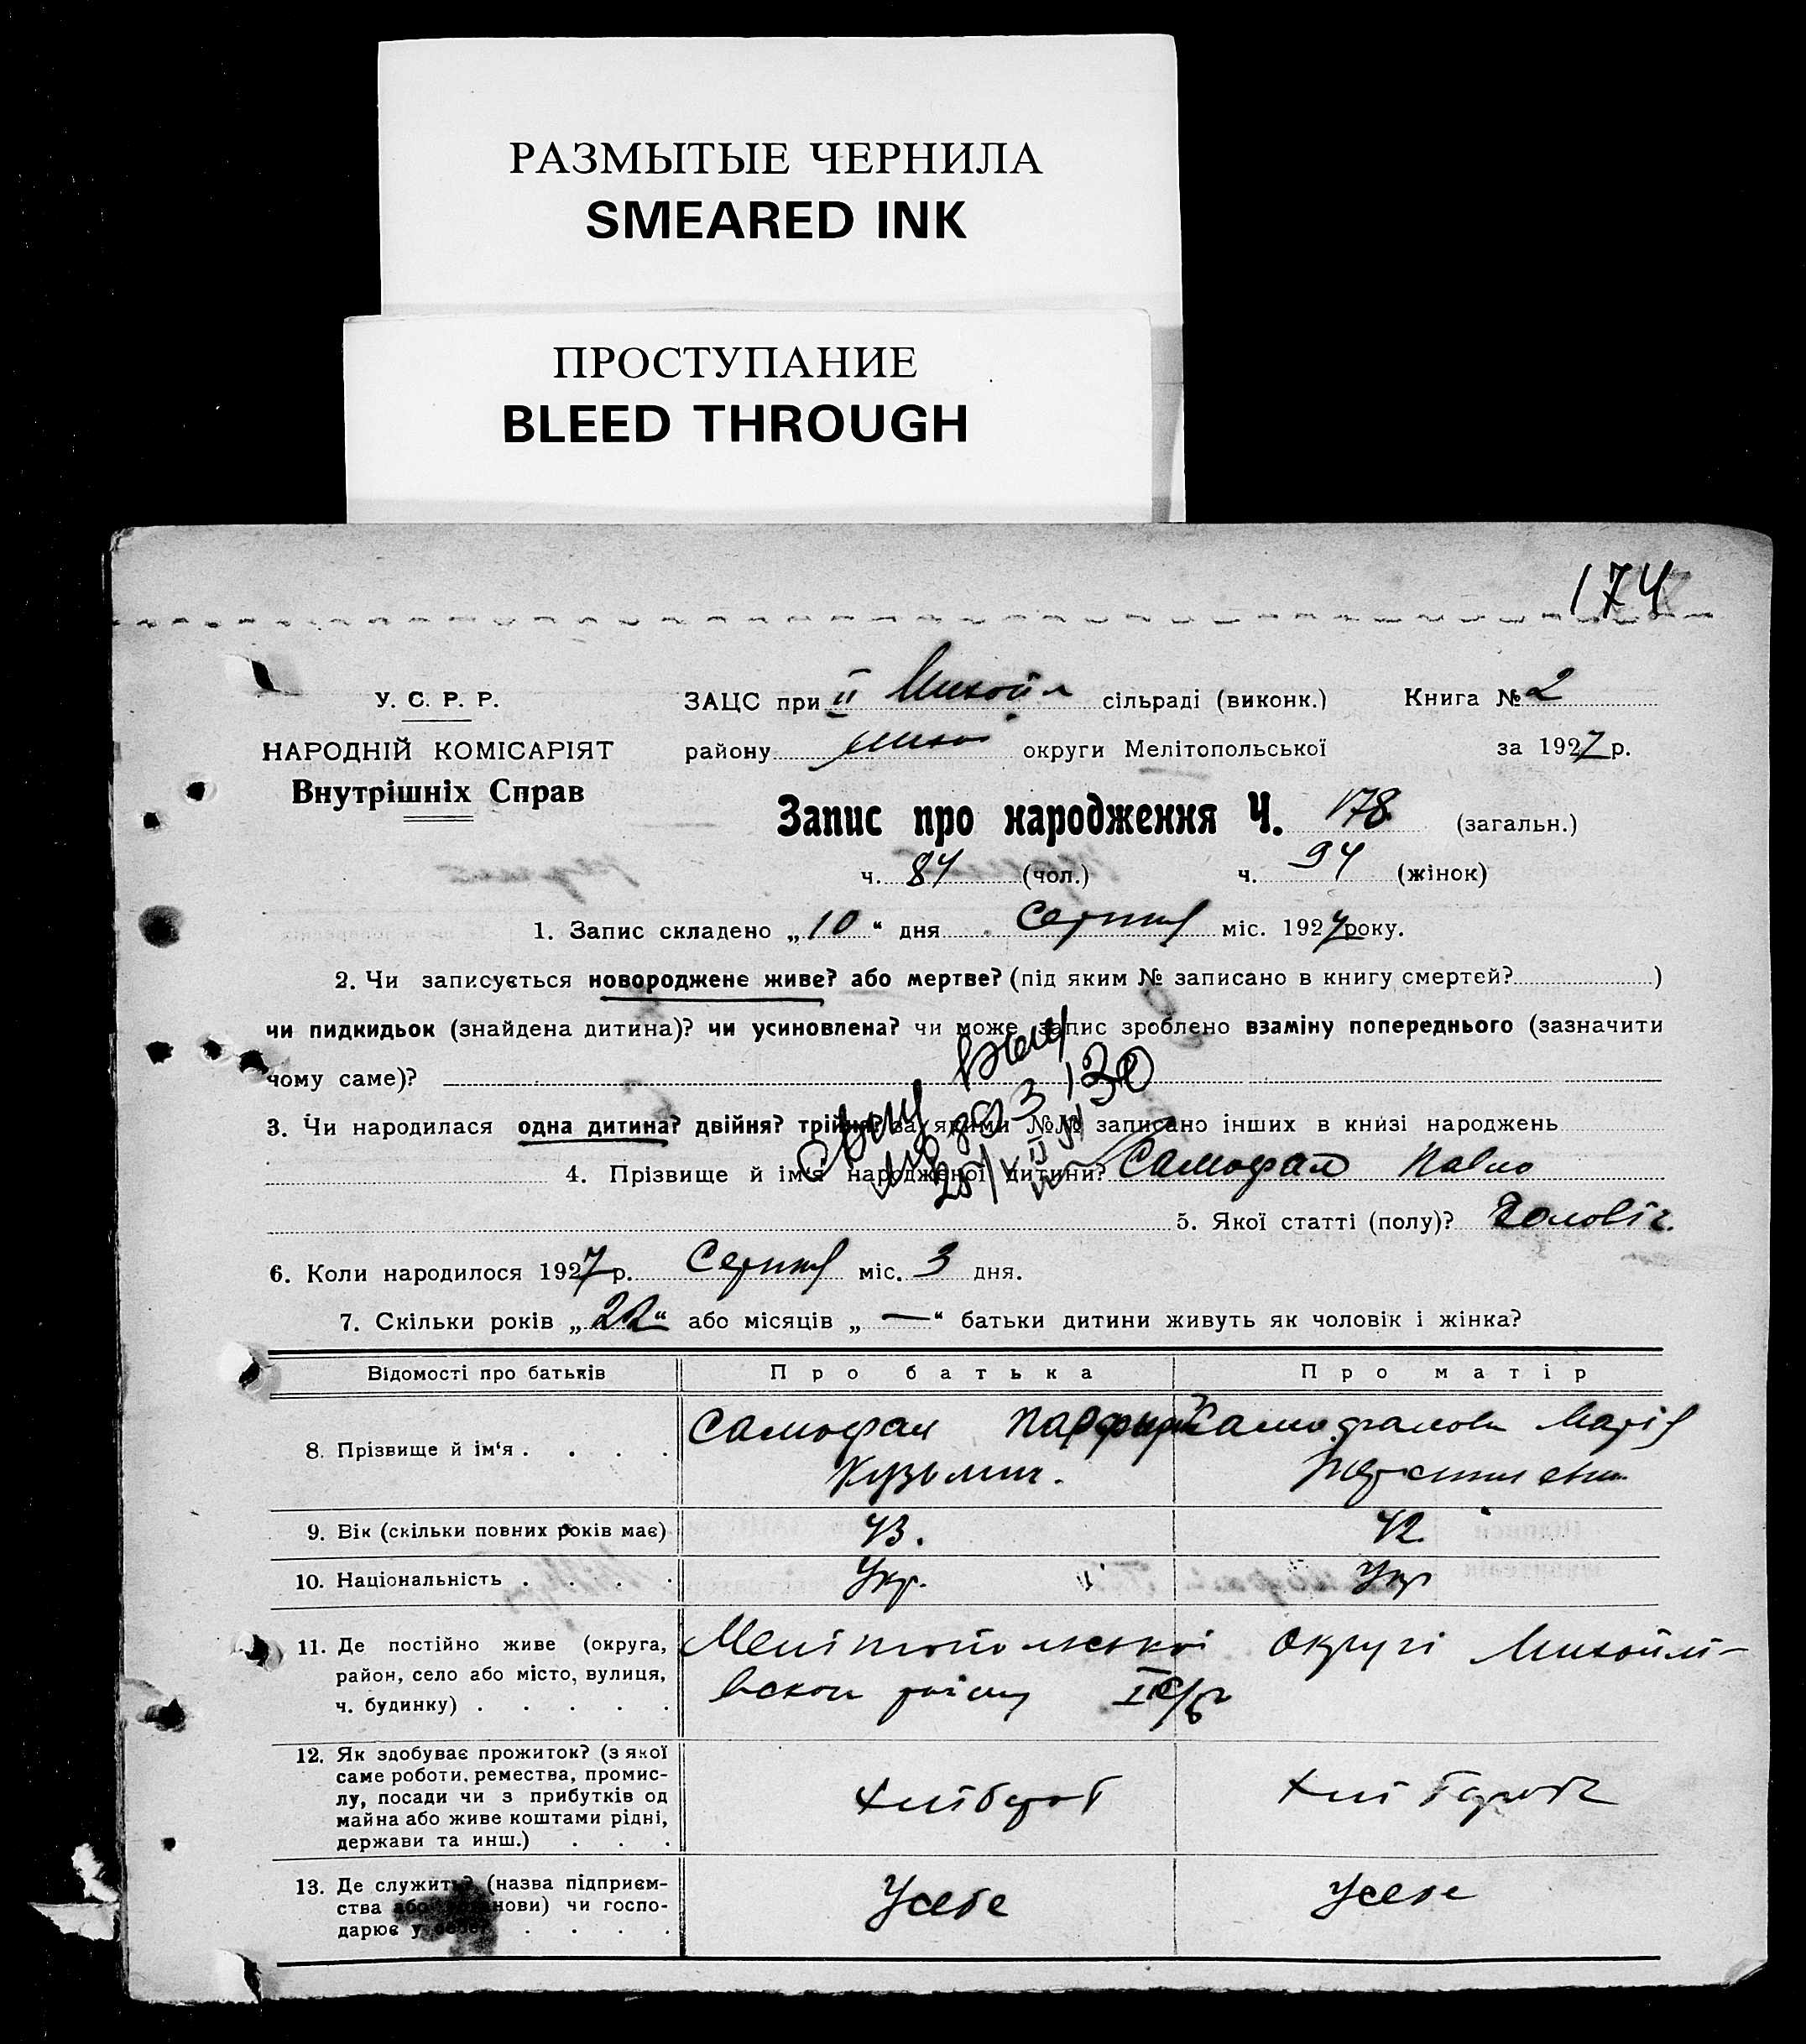 РАЗМЫТЫЕ ЧЕРНИЛА
SMEARED INK
ПРОСТУПАНИЕ
BLEED THROUGH
174
У. С. Р. Р.
НАРОДНІЙ КОМІСАРІЯТ
Внутрішніх Справ
ЗАЦС при II Михайл сільраді (виконк.) Книга № 2
району Миха округи Мелітопольської за 1927 р.
Запис про народження Ч. 178 (загальн.)
ч. 84 (чол.) ч. 94 (жінок)
1. Запис складено „10“ дня Серпня міс. 1927 року.
2. Чи записується новороджене живе? або мертве? (під яким № записано в книгу смертей? )
чи пидкидьок (знайдена дитина)? чи усиновлена? чи може запис зроблено взаміну попереднього (зазначити
чому саме)?
3. Чи народилася одна дитина? двійня? трійня? за якими №№ записано інших в книзі народжень
4. Прізвище й ім‘я народженої дитини? Самофал Павло
5. Якої статті (полу)? Чоловіч.
6. Коли народилося 1927 р. Серпня міс. 3 дня.
7. Скільки років „22“ або місяців „—“ батьки дитини живуть як чоловік і жінка?
Відомості про батьків Про батька Про матір
8. Прізвище й ім‘я . . . . Самофал Самофалова Марія
Кузьмич.
9. Вік (скільки повних років має) 43. 42
10. Національність . . . . Укр. Укр
11. Де постійно живе (округа, район, село або місто, вулиця, ч. будинку) . . . . . Мелітопольської округі Михайлі-
вской району
12. Як здобуває прожиток? (з якої саме роботи, ремества, промислу, посади чи з прибутків од майна або живе коштами рідні, держави та инш.) . . . Хлібороб Хлібороб
13. Де служить? (назва підприємства або установи) чи господарює у себе? . . . . Усебе Усебе